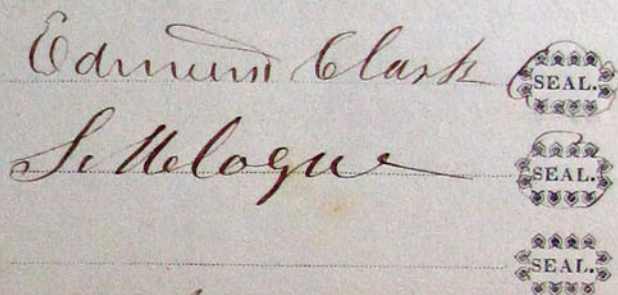 Edmund Clark SEAL.
S. Mclogue SEAL.
SEAL.